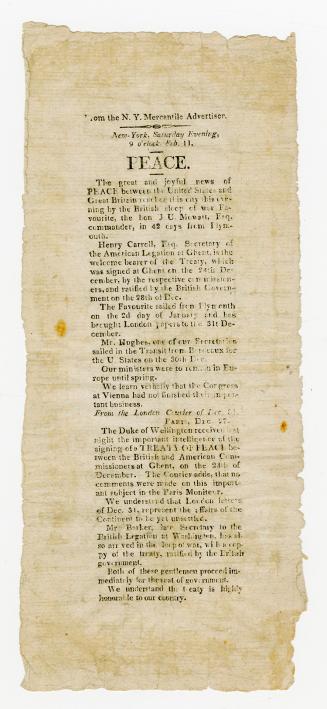 om the N. Y. Mercantile Advertiser.
New-York, Saturday Evening,
9 o'clock Feb. 11.
PEACE.
The great and joyful news of
PEACE between the United States and
Great Britain reached this city this eve-
ning by the British sloop of war Fa-
vourite, the hon J U. Mowatt, Esq.
commander, in 42 days from Plym-
outh.
Henry Carroll, Esq. Secretary of
the American Legation at Ghent, is the
welcome bearer of the Treaty, which
was signed at Ghent on the 24th De-
cember, by the respective commission-
ers, and ratified by the British Govern-
ment on the 28th of Dec.
The Favourite sailed from Plymouth
on the 2d day of January and has
brought London papers to the 31st De-
cember.
Mr. Hughes, one of our Secretaries
sailed in the Transit from Bordeaux for
the U. States on the 30th Dec.
Our ministers were to remain in Eu-
rope until spring.
We learn verbally that the Congress
at Vienna had not finished their impor-
tant business.
From the London Courier of Dec.
PARIS, DEC. 27.
The Duke of Wellington received last
night the important intelligence of the
signing of a TREATY OF PEACE be-
tween the British and American Com-
missioners at Ghent, on the 24th of
December. The Courier adds, that no
comments were made on this import-
ant subject in the Paris Moniteur.
We understand that London letters
of Dec. 31, represent the affairs of the
Continent to be yet unsettled.
Mr. Barker, late Secretary to the
British Legation at Washington, has al-
so arrived in the sloop of war, with a cop-
py of the treaty, ratified by the British
government.
Both of these gentlemen proceed im-
mediately for the seat of government.
We understand the treaty is highly
honourable to our country.